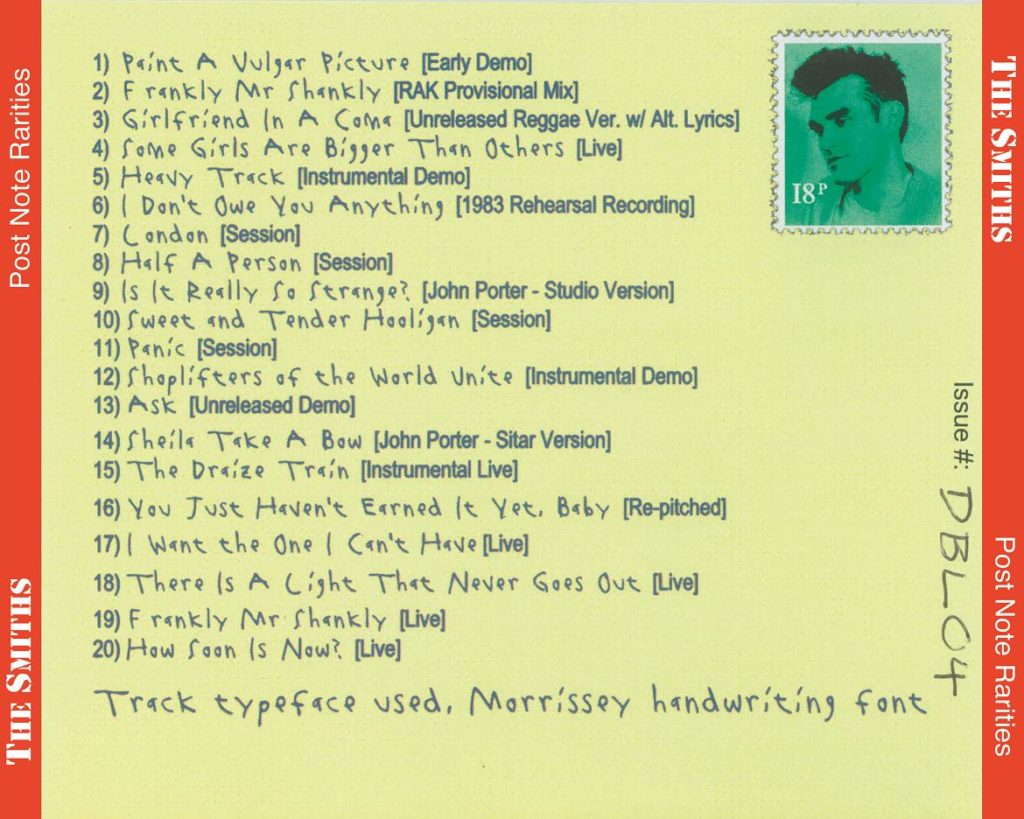 THE SMITHS
Post Note Rarities
1) Paint A Vulgar Picture [Early Demo]
2) Frankly Mr Shankly [RAK Provisional Mix]
3) Girlfriend In A Coma [Unreleased Reggae Ver. w/ Alt. Lyrics]
4) Some Girls Are Bigger Than Others [Live]
5) Heavy Track [Instrumental Demo]
6) I Don't Owe You Anything [1983 Rehearsal Recording]
7) London [Session]
8) Half A Person [Session]
9) Is It Really So Strange? [John Porter - Studio Version]
10) Sweet and Tender Hooligan [Session]
11) Panic [Session]
12) Shoplifters of the World Unite [Instrumental Demo]
13) Ask [Unreleased Demo]
14) Sheila Take A Bow [John Porter - Sitar Version]
15) The Draize Train [Instrumental Live]
16) You Just Haven't Earned It Yet, Baby [Re-pitched]
17) I Want the One I Can't Have [Live]
18) There Is A Light That Never Goes Out [Live]
19) Frankly Mr Shankly [Live]
20) How Soon Is Now? [Live]
Track typeface used, Morrissey handwriting font
18P
Issue #: DBL04
THE SMITHS
Post Note Rarities